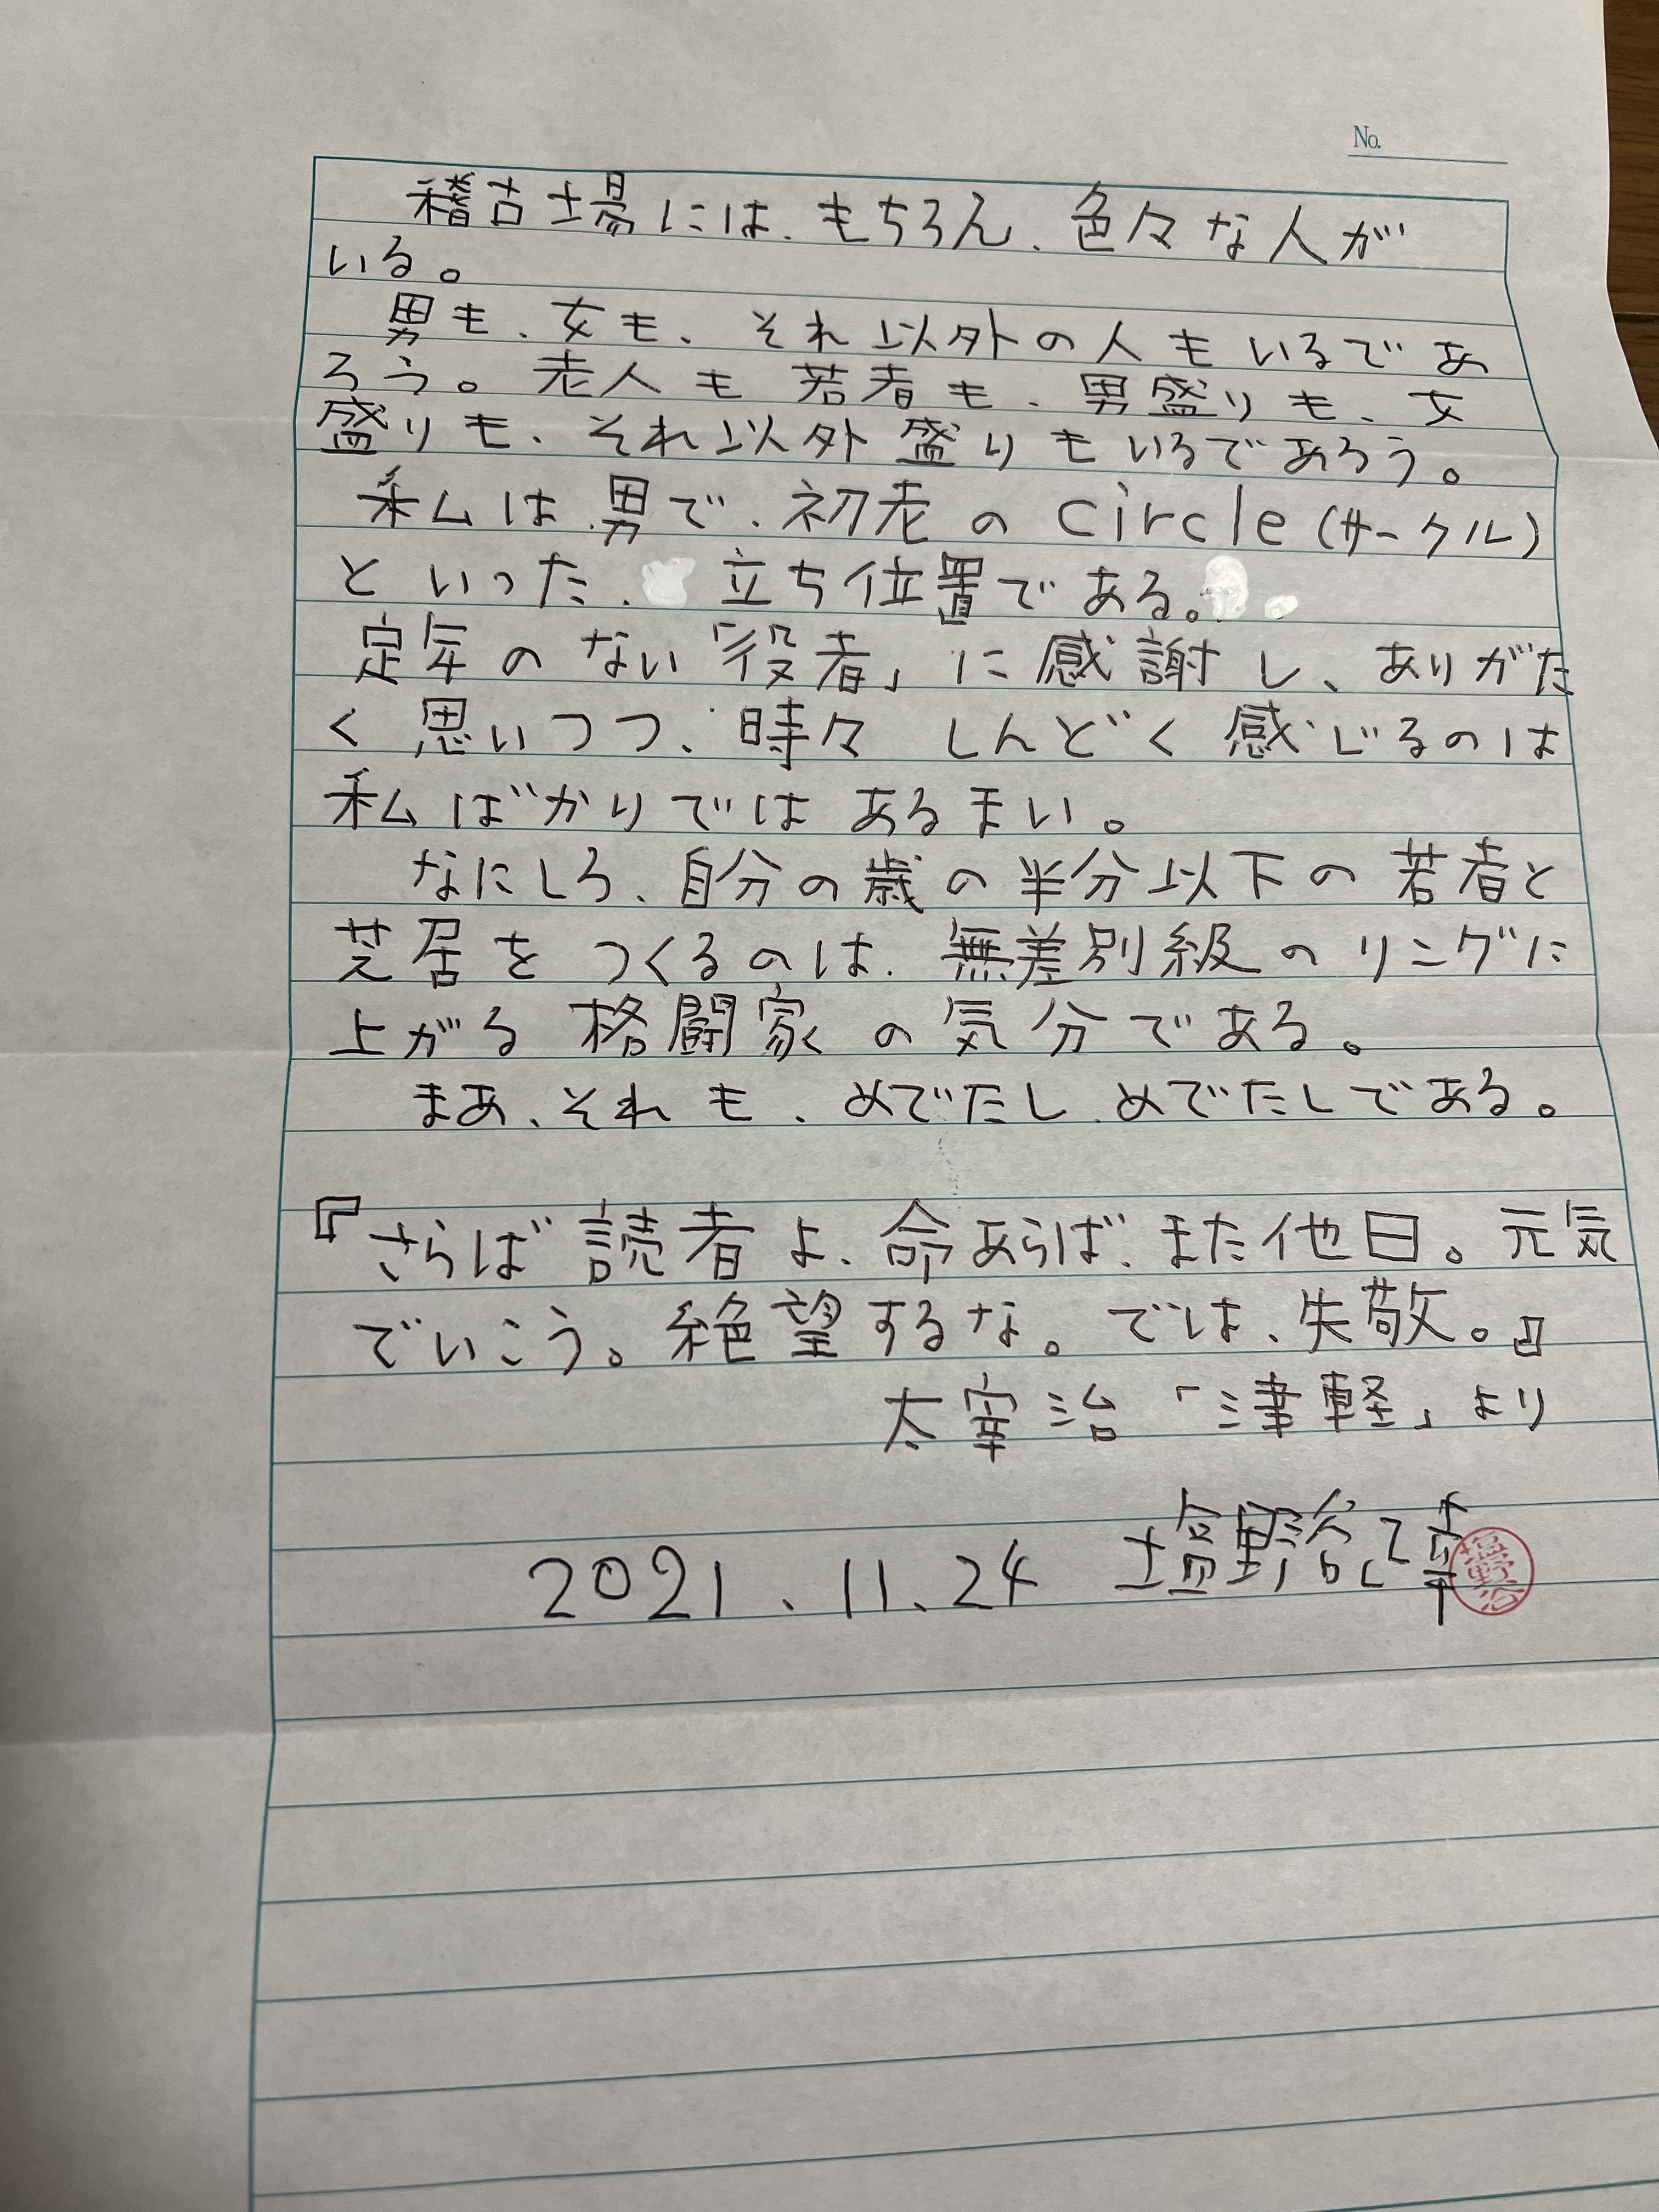 No.
稽古場には、もちろん、色々な人が
いる。
男も、女も、それ以外の人もいるであ
ろう。老人も若者も、男盛りも、女
盛りも、それ以外盛りもいるであろう。
私は男で、初老のcircle(サークル)
といった、立ち位置である。
定年のない「役者」に感謝し、ありがた
く思いつつ、時々しんどく感じるのは
私ばかりではあるまい。
なにしろ、自分の歳の半分以下の若者と
芝居をつくるのは、無差別級のリングに
上がる格闘家の気分である。
まあ、それも、めでたし、めでたしである。
『さらば読者よ、命あらば、また他日。元気
でいこう。絶望するな。では、失敬。』
太宰治「津軽」より
2021.11.24 塩野谷